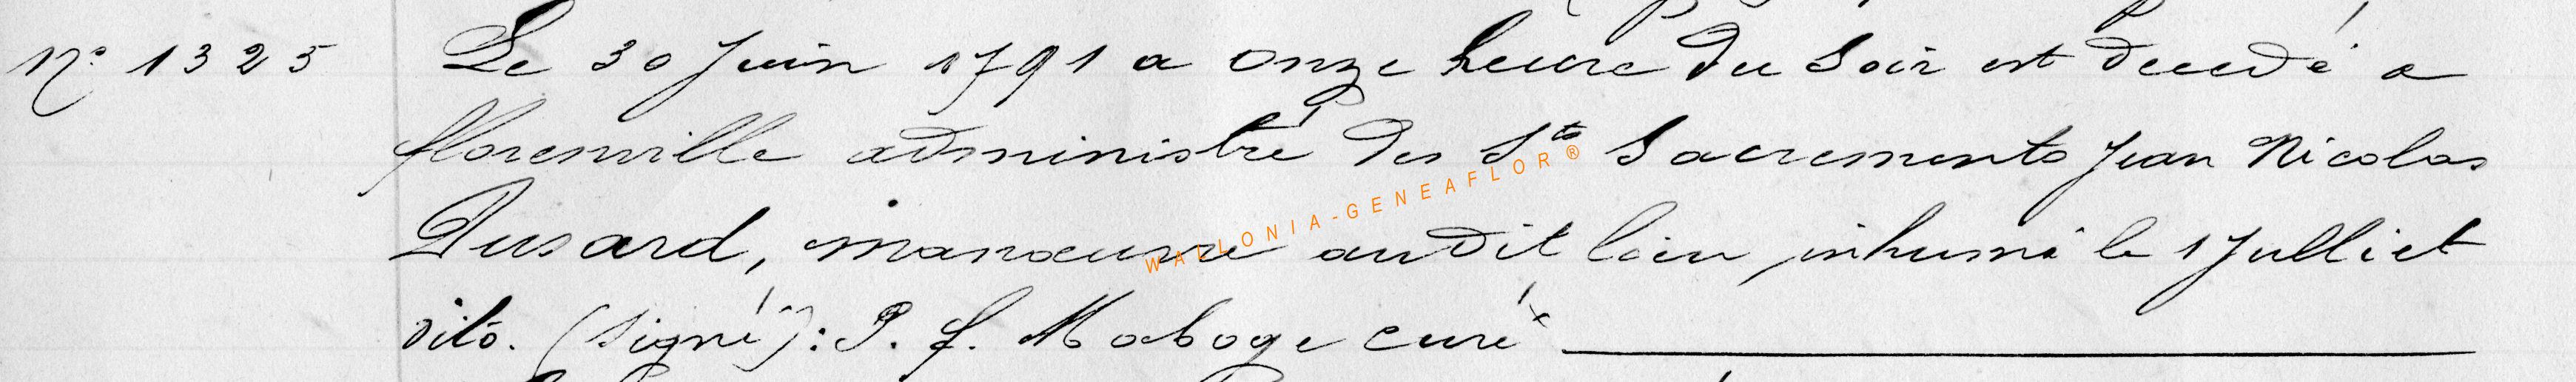 N° 1325 Le 30 Juin 1791 a onze heure du soir est decedé a
florenville administré des Sts Sacrements Jean Nicolas
Dusard, manoeuvre audit lieu, inhumé le 1 Julliet
dito. (signé): P. f. Maboge curé
WALLONIA-GENEAFLOR®